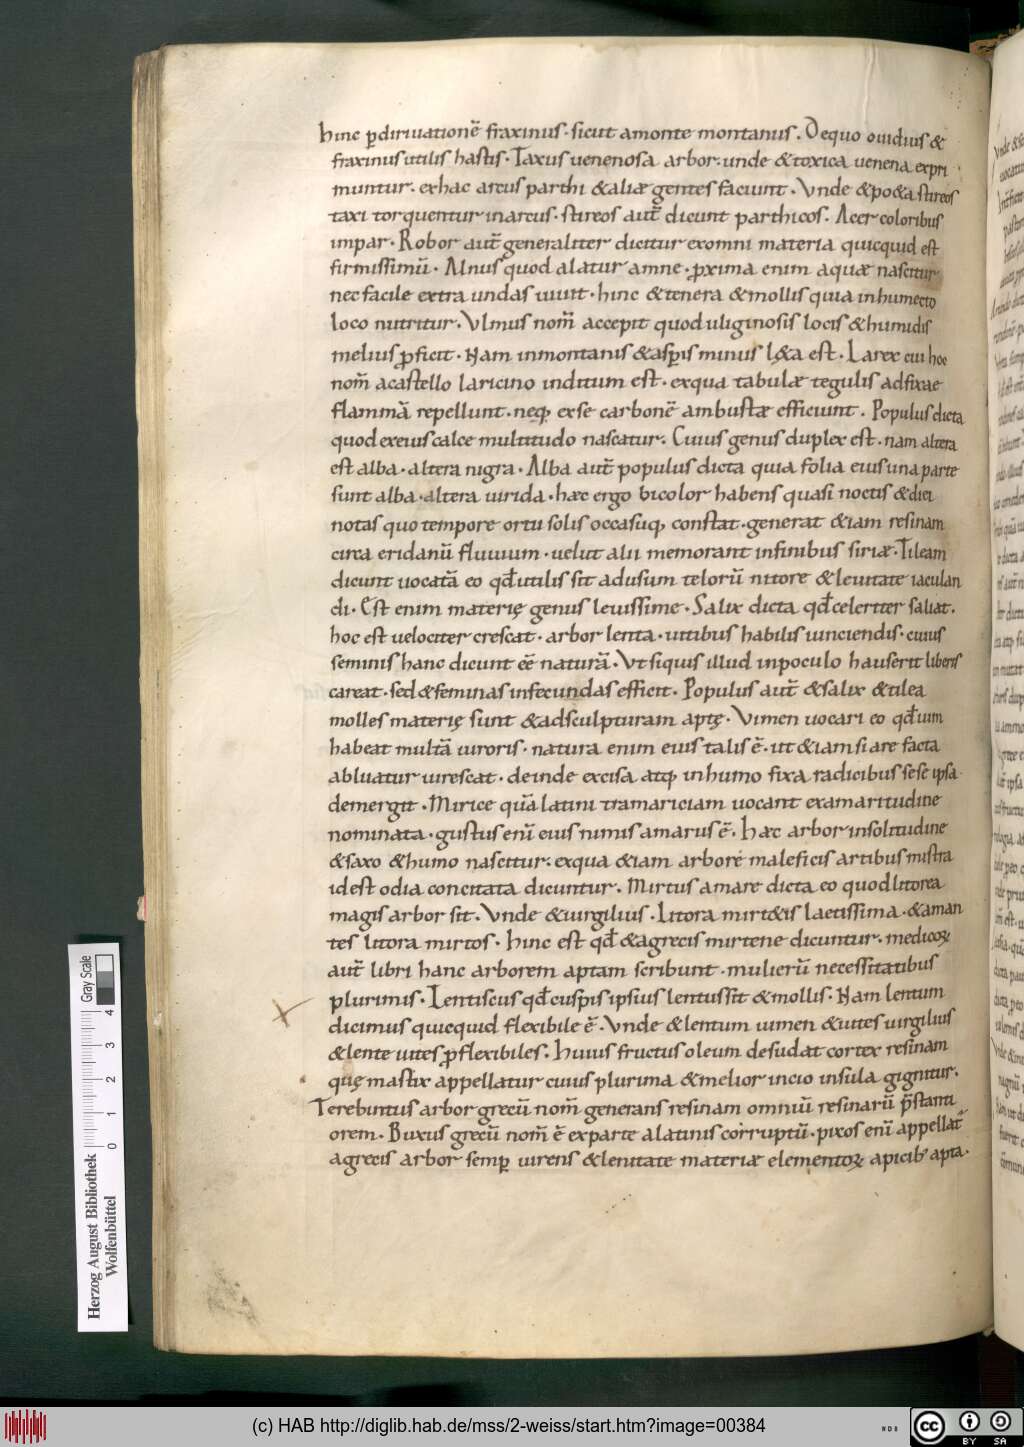 hinc ꝑdiriuationē fraxinus · sicut amonte montanus . De quo ouidius &
fraxinus utilis hastis · Taxus uenenosa arbor · unde & toxica uenena expri
muntur · ex hac arcus parthi & aliæ gentes faciunt · Vnde & po&a stireos
taxi torquentur in arcus · stireos aut̄ dicunt parthicos . Acer coloribus
impar · Robor aut̄ generaliter dicitur ex omni materia quicquid est
firmissimū · Alnus quod alatur amne · ꝓxima enim aquæ nascitur
nec facile extra undas uiuit · hinc & tenera & mollis quia in humecto
loco nutritur · Vlmus nom̄ accepit quod uliginosis locis & humidis
melius ꝓficit · Nam in montanis & asꝑis minus l&a est · Larex cui hoc
nom̄ acastello laricino inditum est · ex qua tabulæ tegulis adfixae
flammā repellunt · neqꝫ ex se carbonē ambustæ efficiunt . Populus dicta
quod ex eius calce multitudo nascatur . Cuius genus duplex est · nam altera
est alba · altera nigra · Alba aut̄ populus dicta quia folia eius una parte
sunt alba · altera uirida · hæc ergo bicolor habens quasi noctis & diei
notas quo tempore ortu solis occasuqꝫ constat · generat &iam resinam
circa eridanū fluuium · uelut alii memorant in finibus siriæ · Tileam
dicunt uocatā eo qđ utilis sit ad usum telorū nitore & leuitate iaculan
di · Est enim materię genus leuissime · Salix dicta qđ celeriter saliat .
hoc est uelociter crescat · arbor lenta · uitibus habilis uinciendis · cuius
seminis hanc dicunt eē naturā · Vt siquis illud in poculo hauserit liberis
careat · sed & feminas infecundas efficit . Populus aut̄ & salix & tilea
molles materię sunt & ad sculpturam aptę · Vimen uocari eo qđ uim
habeat multā uiroris · natura enim eius talis ē · ut &iam si are facta
abluatur uirescat · deinde excisa atqꝫ in humo fixa radicibus sese ipsa
demergit · Mirice quā latini tramariciam uocant ex amaritudine
nominata · gustus enī eius nimis amarus ē . hæc arbor in solitudine
& saxo & humo nascitur . ex qua &iam arbore maleficis artibus mistra
id est odia concitata dicuntur . Mirtus a mare dicta eo quod litorea
magis arbor sit . Vnde & uirgilius · Litora mirt&is laetissima · & aman
tes litora mirtos · hinc est qđ & agrecis mirtene dicuntur · medicoꝝ
aut̄ libri hanc arborem aptam scribunt · mulierū necessitatibus
plurimis . Lentiscus qđ cuspis ipsius lentus sit & mollis · Nam lentum
dicimus quicquid flexibile ē · Vnde & lentum uimen & uites uirgilius
& lente uites ꝓflexibiles . Huius fructus oleum desudat cortex resinam
quę mastix appellatur cuius plurima & melior in cio insula gignitur .
Terebintus arbor grecū nom̄ generans resinam omniū resinarū p̄stanti
orem . Buxus grecū nom̄ ē ex parte a latinis corruptū · pixos enī appellat̄
agrecis arbor semꝑ uirens & lenitate materiæ elementoꝝ apicib' apta .
Herzog August Bibliothek
Wolfenbüttel
0 1 2 3 4
Gray Scale
(c) HAB http://diglib.hab.de/mss/2-weiss/start.htm?image=00384
cc BY SA